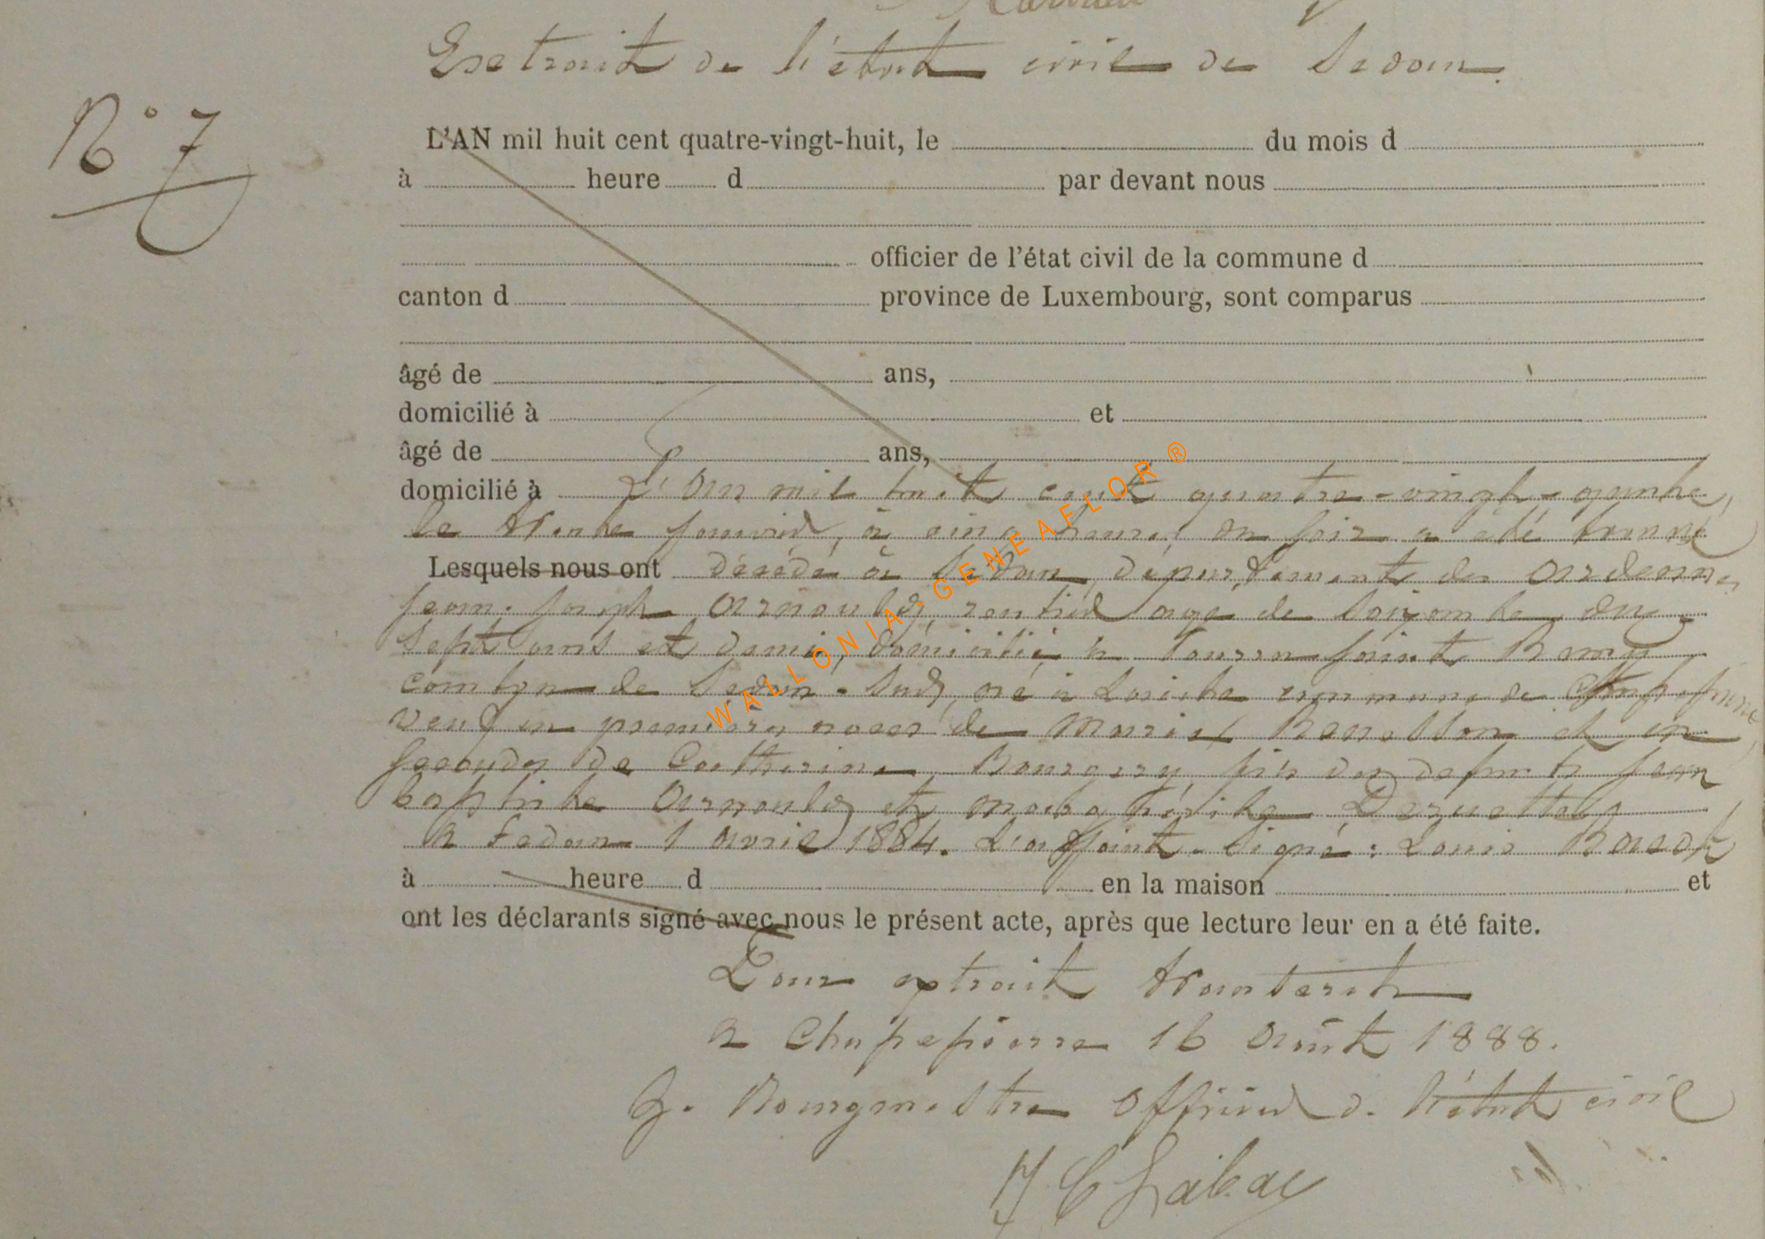 Extrait de l'état civil de Sedan.
N° 7
L'AN mil huit cent quatre-vingt-huit, le du mois d
à heure d par devant nous
officier de l'état civil de la commune d
canton d province de Luxembourg, sont comparus
âgé de ans,
domicilié à et
âgé de ans,
domicilié à L'an mil huit cent quatre-vingt-quatre,
le trente janvier, à cinq heures du soir a été trouvé
Lesquels nous ont décédé à Sedan, département des Ardennes,
Jean-Joseph Arnould, rentier age de soixante dix
sept ans et demi, domicilié à saint Remy
canton de Sedan-Sud, né à commune de
veuf en premières noces de Marie et en
secondes de Catherine Bourgery, fils des defunts Jean
baptiste Arnould et
A Sedan 1 avril 1884. L'adjoint. Signé: Louis
à heure d en la maison et
ont les déclarants signé avec nous le présent acte, après que lecture leur en a été faite.
Pour extrait
A Chapepierre 16 Août 1888.
Bourgmestre Officier d. l'état civil
WALLONIA-GENEAFLOR ®